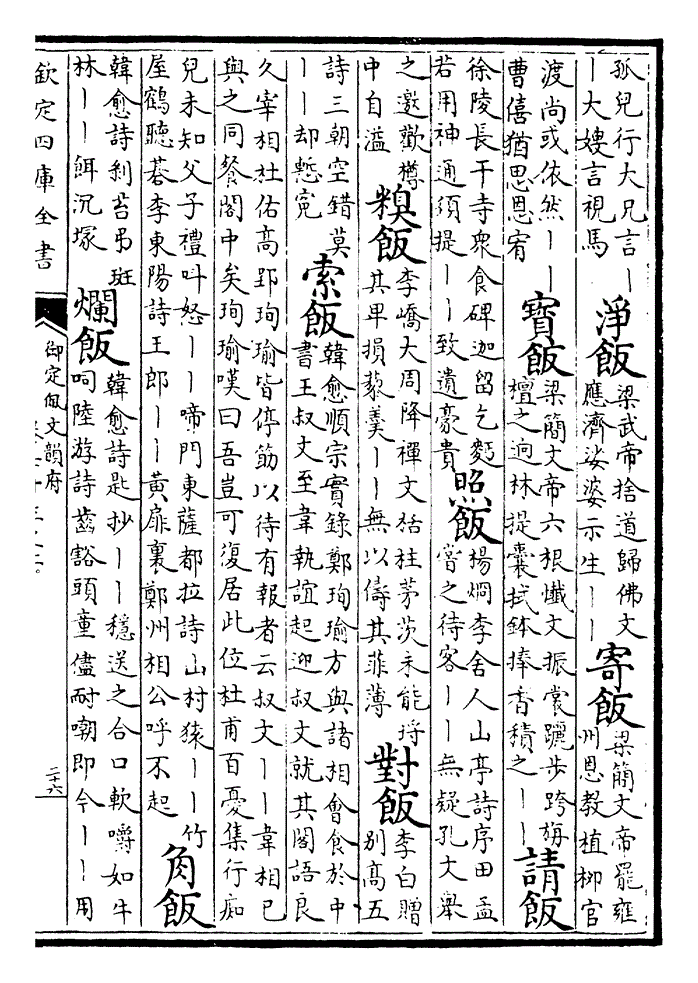 孤兒行大兄言丨
丨大嫂言視馬
淨飯
梁武帝捨道歸佛文
應濟娑婆示生丨丨
寄飯
梁簡文帝罷雍
州恩教植柳官
渡尚或依然丨丨
曹僖猶思恩宥
寳飯
梁簡文帝六根懺文振裳躡步跨旃
檀之逈林提囊拭鉢捧香積之丨丨
請飯
徐陵長干寺衆食碑迦留乞麪
若用神通須提丨丨致遺豪貴
照飯
楊烱李舍人山亭詩序田孟
嘗之待客丨丨無疑孔文舉
之邀歡樽
中自溢
糗飯
李嶠大周降禪文栝柱茅茨未能捋
其卑損藜羹丨丨無以儔其菲薄
對飯
李白贈
别髙五
詩三朝空錯莫
丨丨却慙寃
索飯
韓愈順宗實錄鄭珣瑜方與諸相會食於中
書王叔文至韋執誼起迎叔文就其閣語良
久宰相杜佑髙郢珣瑜皆停筯以待有報者云叔文丨丨韋相已
與之同餐閣中矣珣瑜嘆曰吾豈可復居此位杜甫百憂集行痴
兒未知父子禮叫怒丨丨啼門東薩都拉詩山村猿丨丨竹
屋鶴聽碁李東陽詩王郎丨丨黄扉裏鄭州相公呼不起
角飯
韓愈詩刹苔弔斑
林丨丨餌沉塚
爛飯
韓愈詩匙抄丨丨穩送之合口軟嚼如牛
呞陸游詩齒豁頭童儘耐嘲即今丨丨用
欽定四庫全書
御定佩文韻府
二十六